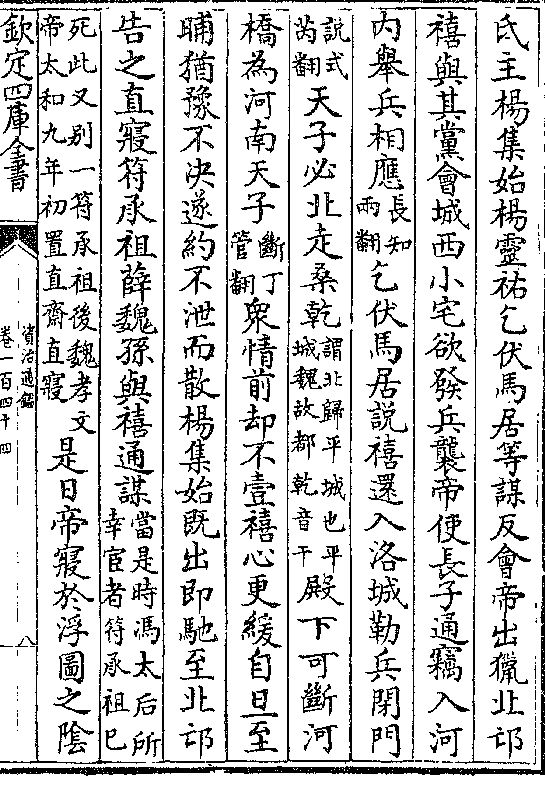 氏主楊集始楊靈祐乞伏馬居等謀反會帝出獵北邙
禧與其黨會城西小宅欲發兵襲帝使長子通竊入河
内舉兵相應長知兩翻乞伏馬居説禧還入洛城勒兵閉門
説式芮翻天子必北走桑乾謂北歸平城也平城魏故都乾音干殿下可斷河
橋為河南天子斷丁管翻衆情前却不壹禧心更緩自旦至
晡猶豫不决遂約不泄而散楊集始既出即馳至北邙
告之直寢符承祖薛魏孫與禧通謀當是時馮太后所幸宦者符承祖已
死此又别一符承祖後魏孝文帝太和九年初置直齋直寢是日帝寢於浮圖之陰
欽定四庫全書
資治通鑑
卷一百四十四
八